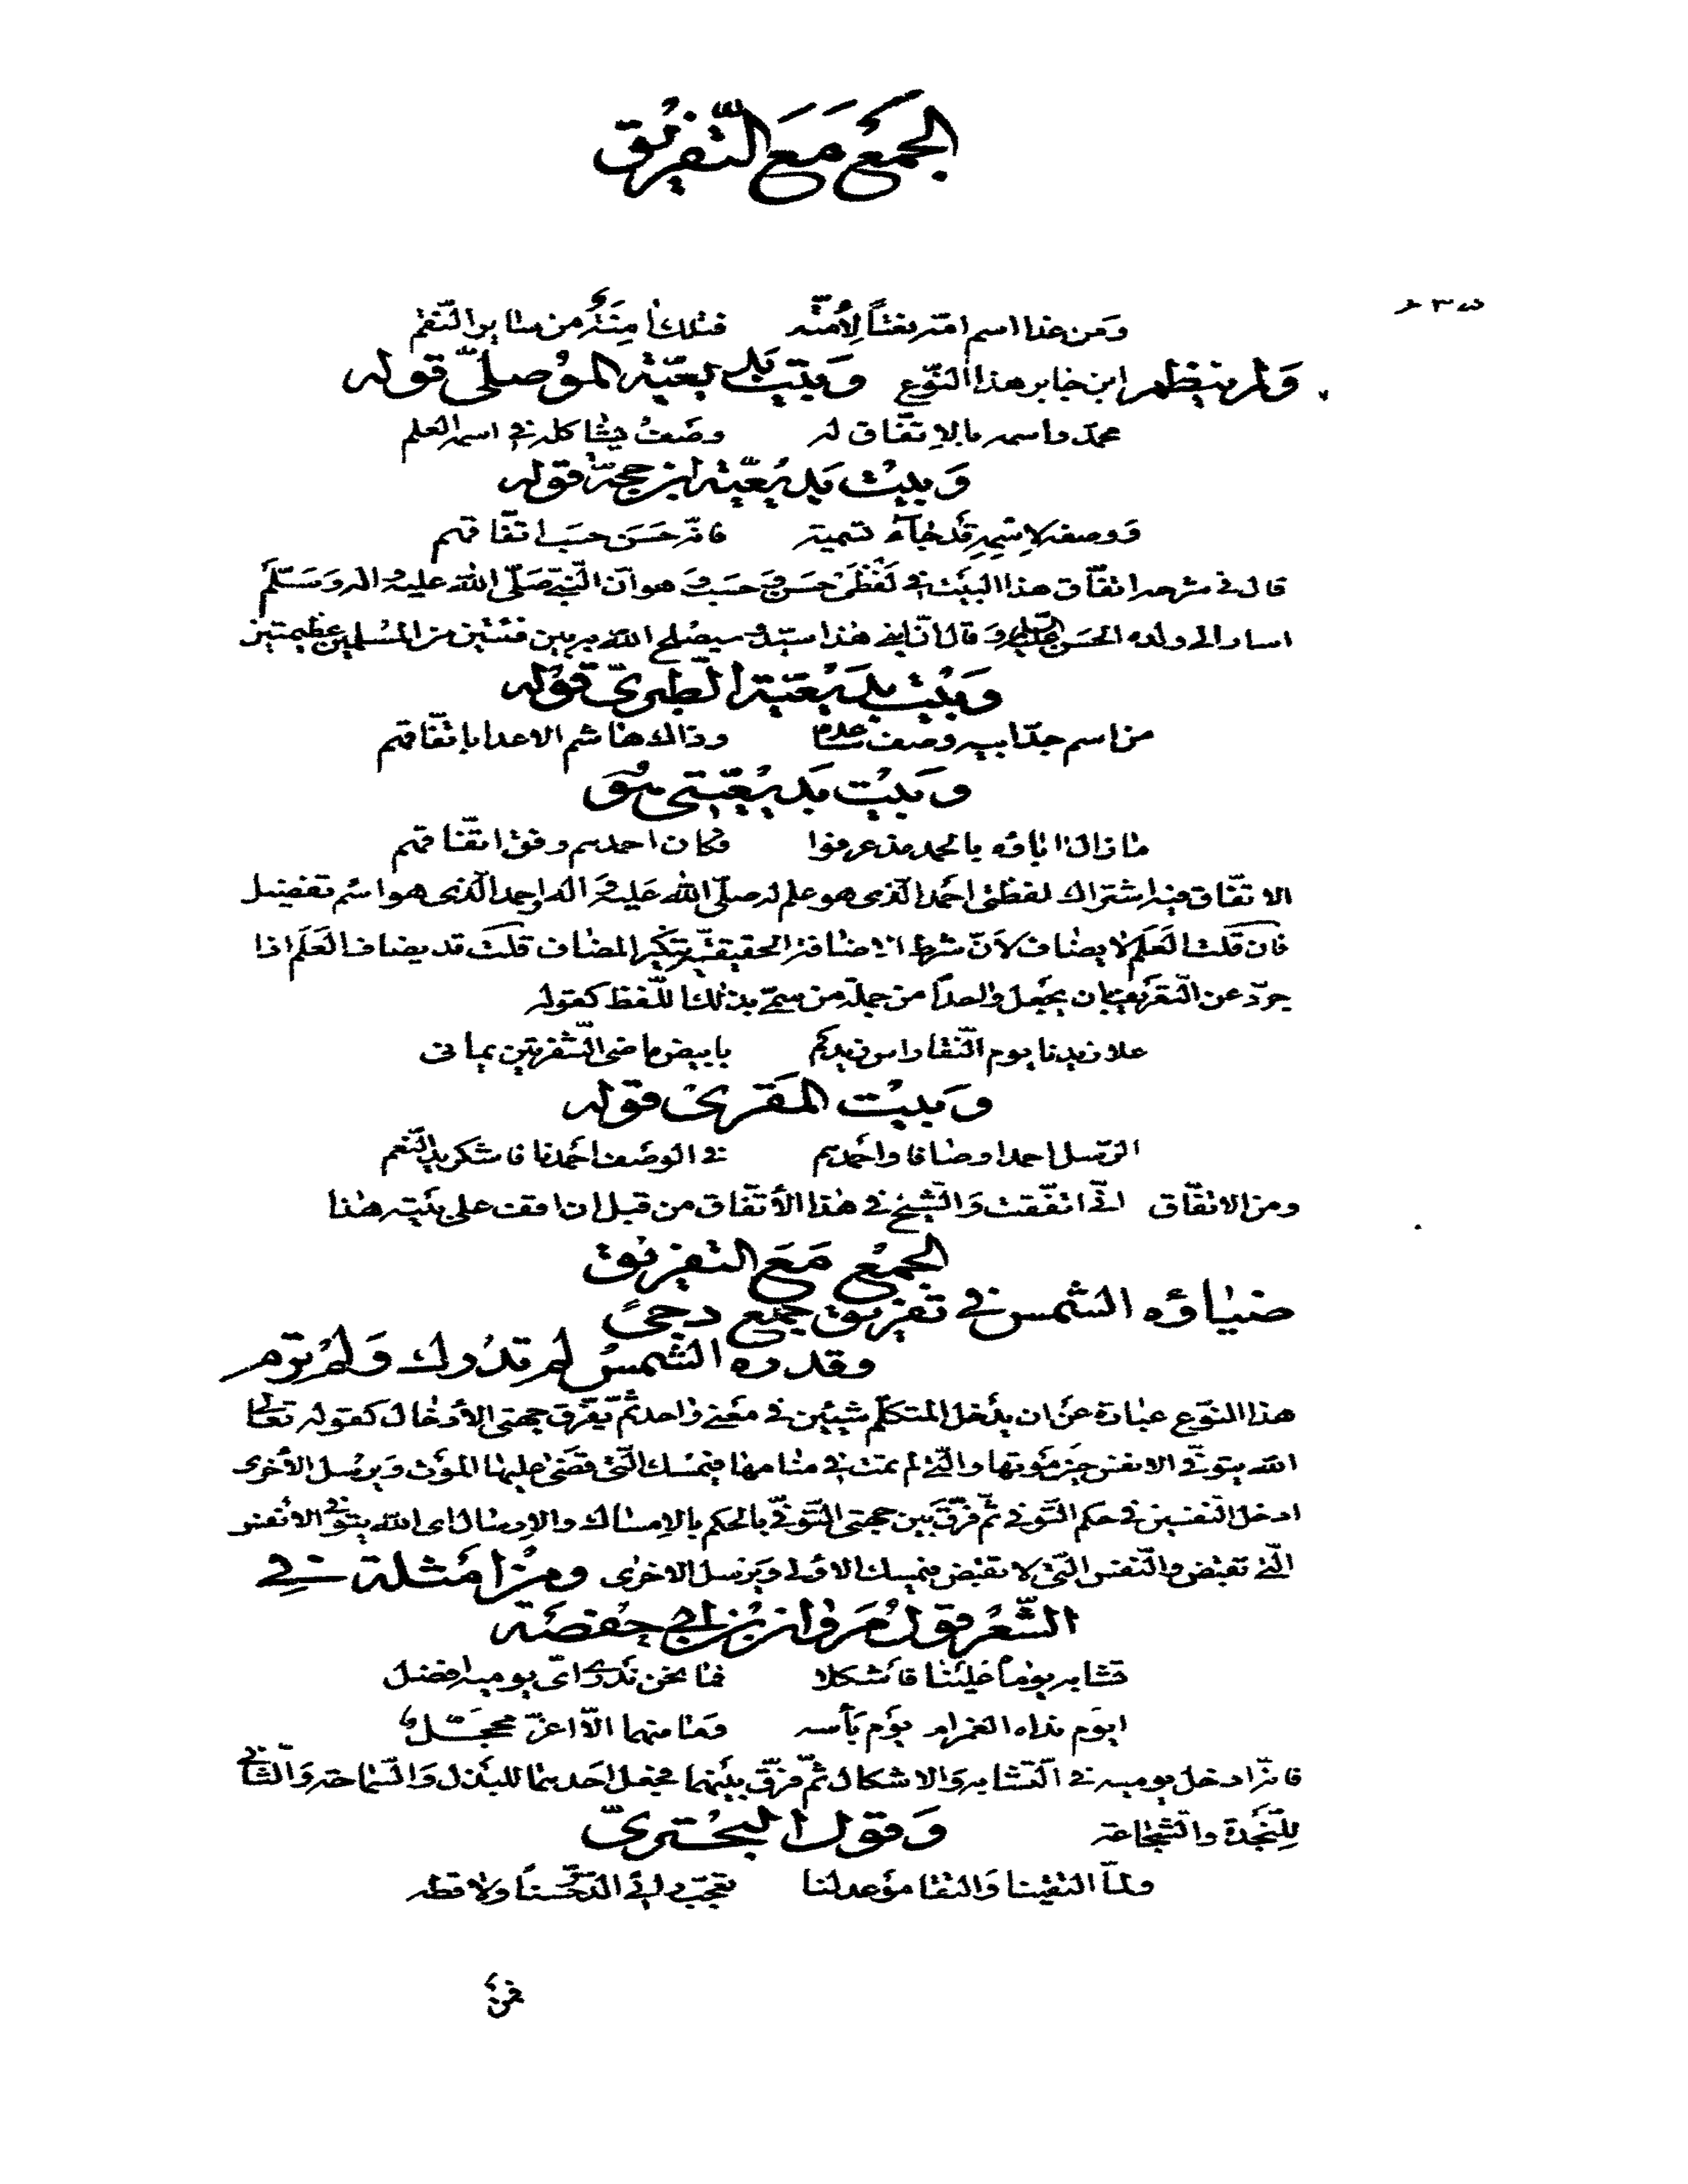 الجَمْع مَعَ التّفريق
ومَن غدا اسم امّه نعتاً لأُمّته فتلك آمنةٌ من سائر النّقم
وَلم ينظم ابن جابر هذا النّوع وَبيت بديعيّة الموصلّي قوله
محمّد واسمه بالاتّفاق له وصف يشاكله في اسمه العلم
وَبيت بديعيّة ابن حجّة قوله
وَوصفه لاسمِهِ قد جاء تسمية فانّه حَسَن حسب اتّفاقهم
قال في شرحه اتفّاق هذا البيت في لَفظَى حَسَن وحسب وَهو انّ النّبي صَلّى الله عليه واله وَسَلّم
اشار الى ولده الحَسَن عليه السلم وَقال انّ ابني هذا سيّد وسيصلح الله به بين فئتين من المسلمين عظيمتين
وَبيت بديعيّة الطّبريّ قوله
من اسم جدّ ابيه وصف وذاك هاشم الاعدا باتّفاقهم
وَبيت بديعيّتي هو
ما زال اباؤه بالحمد مذ عرفوا فكان احمدهم وفق اتّفاقهم
الاتّفاق فيه اشتراك لفظَى احمد الّذى هو علم له صلّى الله عَليه وَاله واحمد الّذى هو اسم تفضيل
فان قلت العَلَم لا يضاف لأنّ شرط الاضافة الحقيقيّة تنكير المضاف قلت قد يضاف العَلَم اذا
جرّد عن التّعريف بان يجعل واحداً من جملة من سمّي بذلك اللّفظ كقوله
علا زيدنا يوم النّقا راس زيدكم بابيض ماضى الشّفرتين يمانى
وبيت المقرى قوله
الرّسل احمد اوصافا واحمدهم في الوصف احمدنا فاشكر يد النّعم
ومن الاتفّاق انّي اتفّقت وَالشّيخ في هذا الأتّفاق من قبل ان اقف على بَيته هذا
الجمْع مَعَ التفريق
ضياؤه الشّمس في تفريق جمع دجىً
وقدره الشّمس لم تدرك وَلم ترم
هذا النّوع عبارة عن ان يدخل المتكلّم شيئين في معنى واحد ثمّ يفرّق جهتى الأدخال كقوله تعالى
الله يتوفّى الانفس حين موتها والّتي لم تمت في منامها فيمسك الّتى قضى عليها الموت وَيرسل الأخرى
ادخل النّفسين في حكم التّوفى ثمّ فرّق بين جهتى التّوفّى بالحكم بالامساك والارسال اى الله يتوفّى الأنفس
الّتي تقبض والنّفس الّتى لا تقبض فيمسك الاولى وَيرسل الاخرى ومن امثلة في
الشّعر قول مَروان بن ابى حفصة
تشابه يوماً علينا فاشكلا فما نحن ندرى اىّ يوميه افضل
ايوم نداه الغمر ام يوم بأسه وما منهما الاّ اغرّ محجّل
فانّه ادخل يوميه في التّشابه وَالاشكال ثمّ فرّق بينهما فجعل احَدهما للبذل وَالسّماحة وَالثّانى
للنّجدة والشّجاعة وَقول البحتريّ
ولمّا التقينا وَالنقا موعد لنا تعجّب رائي الدّرّ حُسناً ولاقطه
فمن